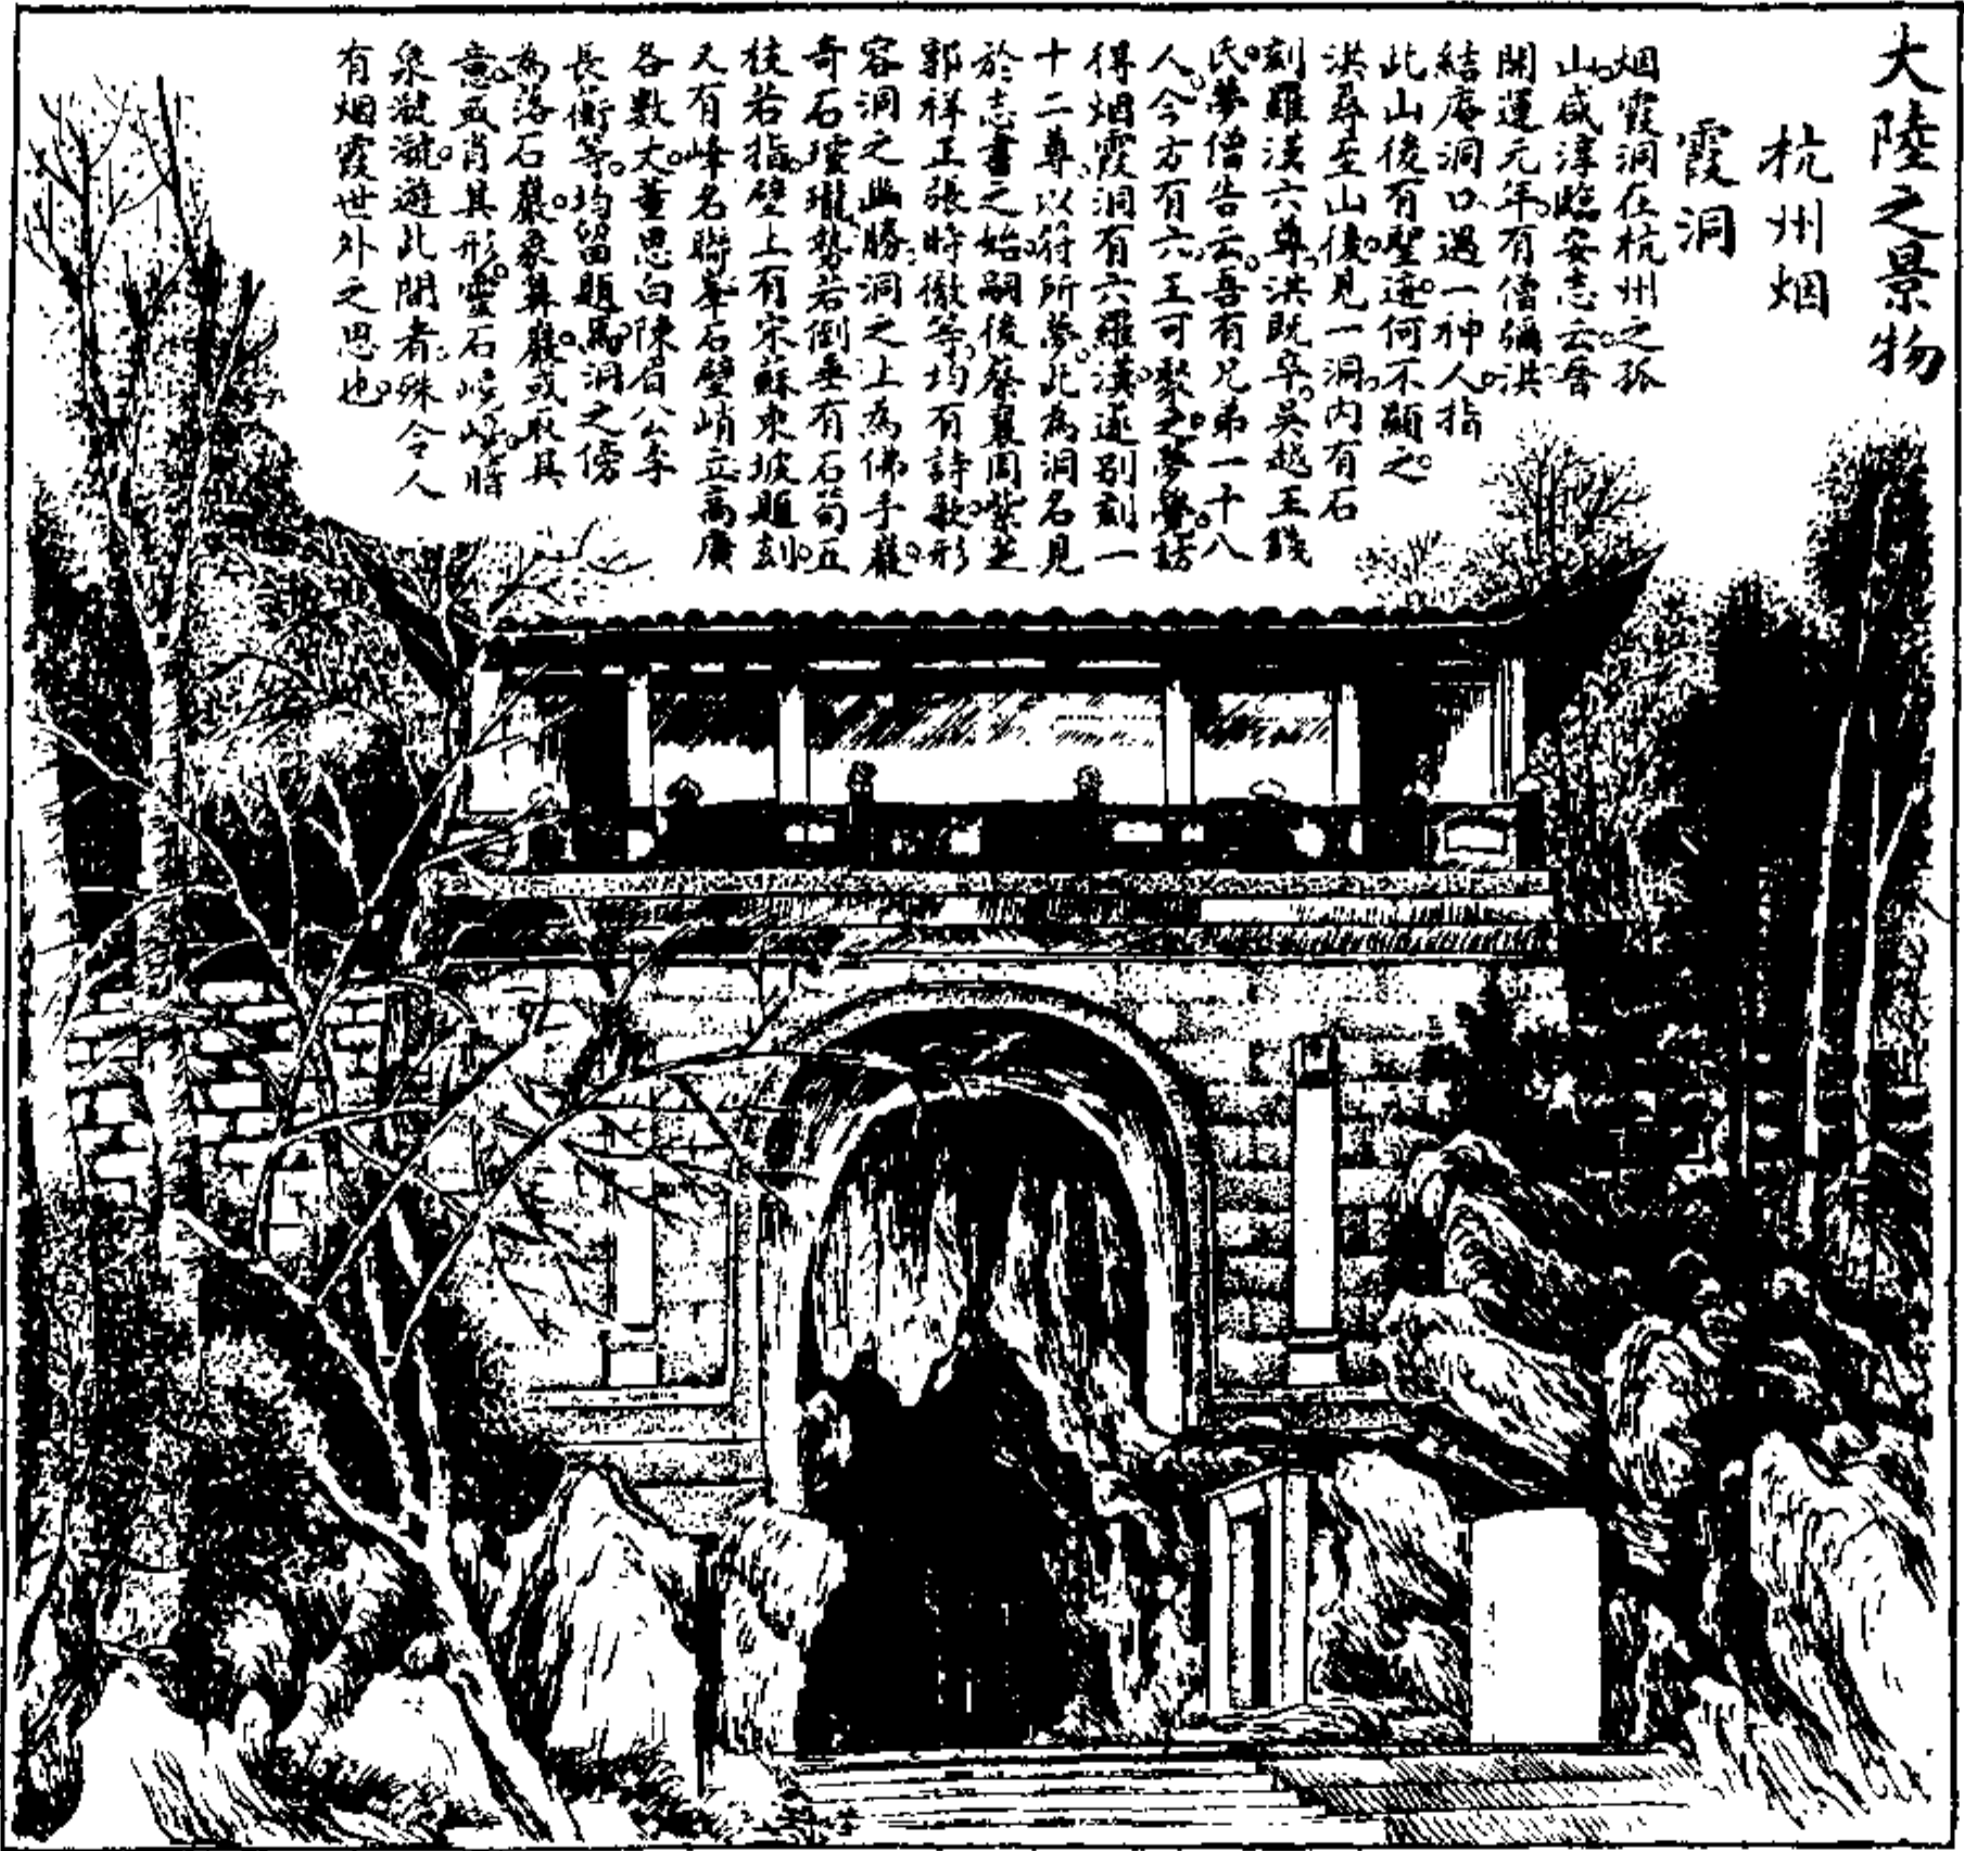 大陸之景物
杭州烟
霞洞
烟霞洞在杭州之孤
山。咸淳臨安志云。晉
開運元年。有僧彌洪
結庵洞口。遇一神人。指
此山後有聖蹟。何不顯之。
洪尋至山後。見一洞。內有石
刻羅漢六尊。洪既卒。吳越王錢
氏。夢僧告云。吾有兄弟一十八
人。今方有六。王可聚之。夢覺。訪
得烟霞洞有六羅漢。遂別刻一
十二尊。以符所夢。此為洞名見
於志書之始。嗣後蔡襄周紫芝
郭祥正張時徹等。均有詩歌。形
容洞之幽勝。洞之上為佛手巖。
奇石瓏瓏。勢若倒垂。有石筍五
枝若指。壁上有宋蘇東坡題刻。
又有峰名聯峯。石壁峭立。高廣
各數丈。董思白陳眉公李
長蘅等。均留題焉。洞之傍
為落石巖。象鼻巖。或取其
意。或肖其形。靈石峴。暗
泉潺潺。遊此間者。殊令人
有烟霞世外之思也。